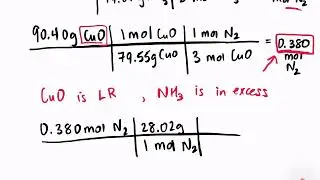 mol N₂
90.40g CuO | 1 mol CuO | 1 mol N₂
79.55g CuO | 3 mol CuO = 0.380 mol N₂
CuO is LR , NH₃ is in excess
0.380 mol N₂ | 28.02g
1 mol N₂